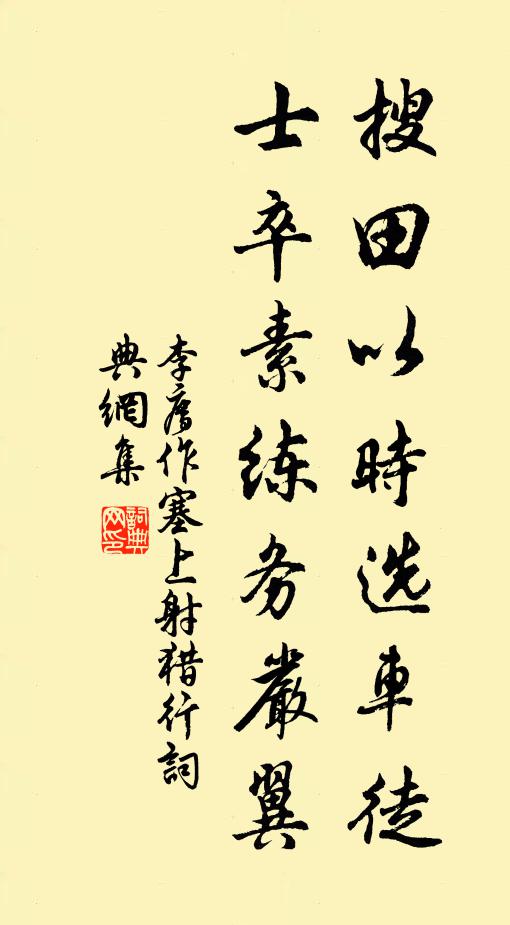 搜田以時选車徒
士卒素练务嚴翼
李廌作塞上射猎行詞
典網集
詞典网印